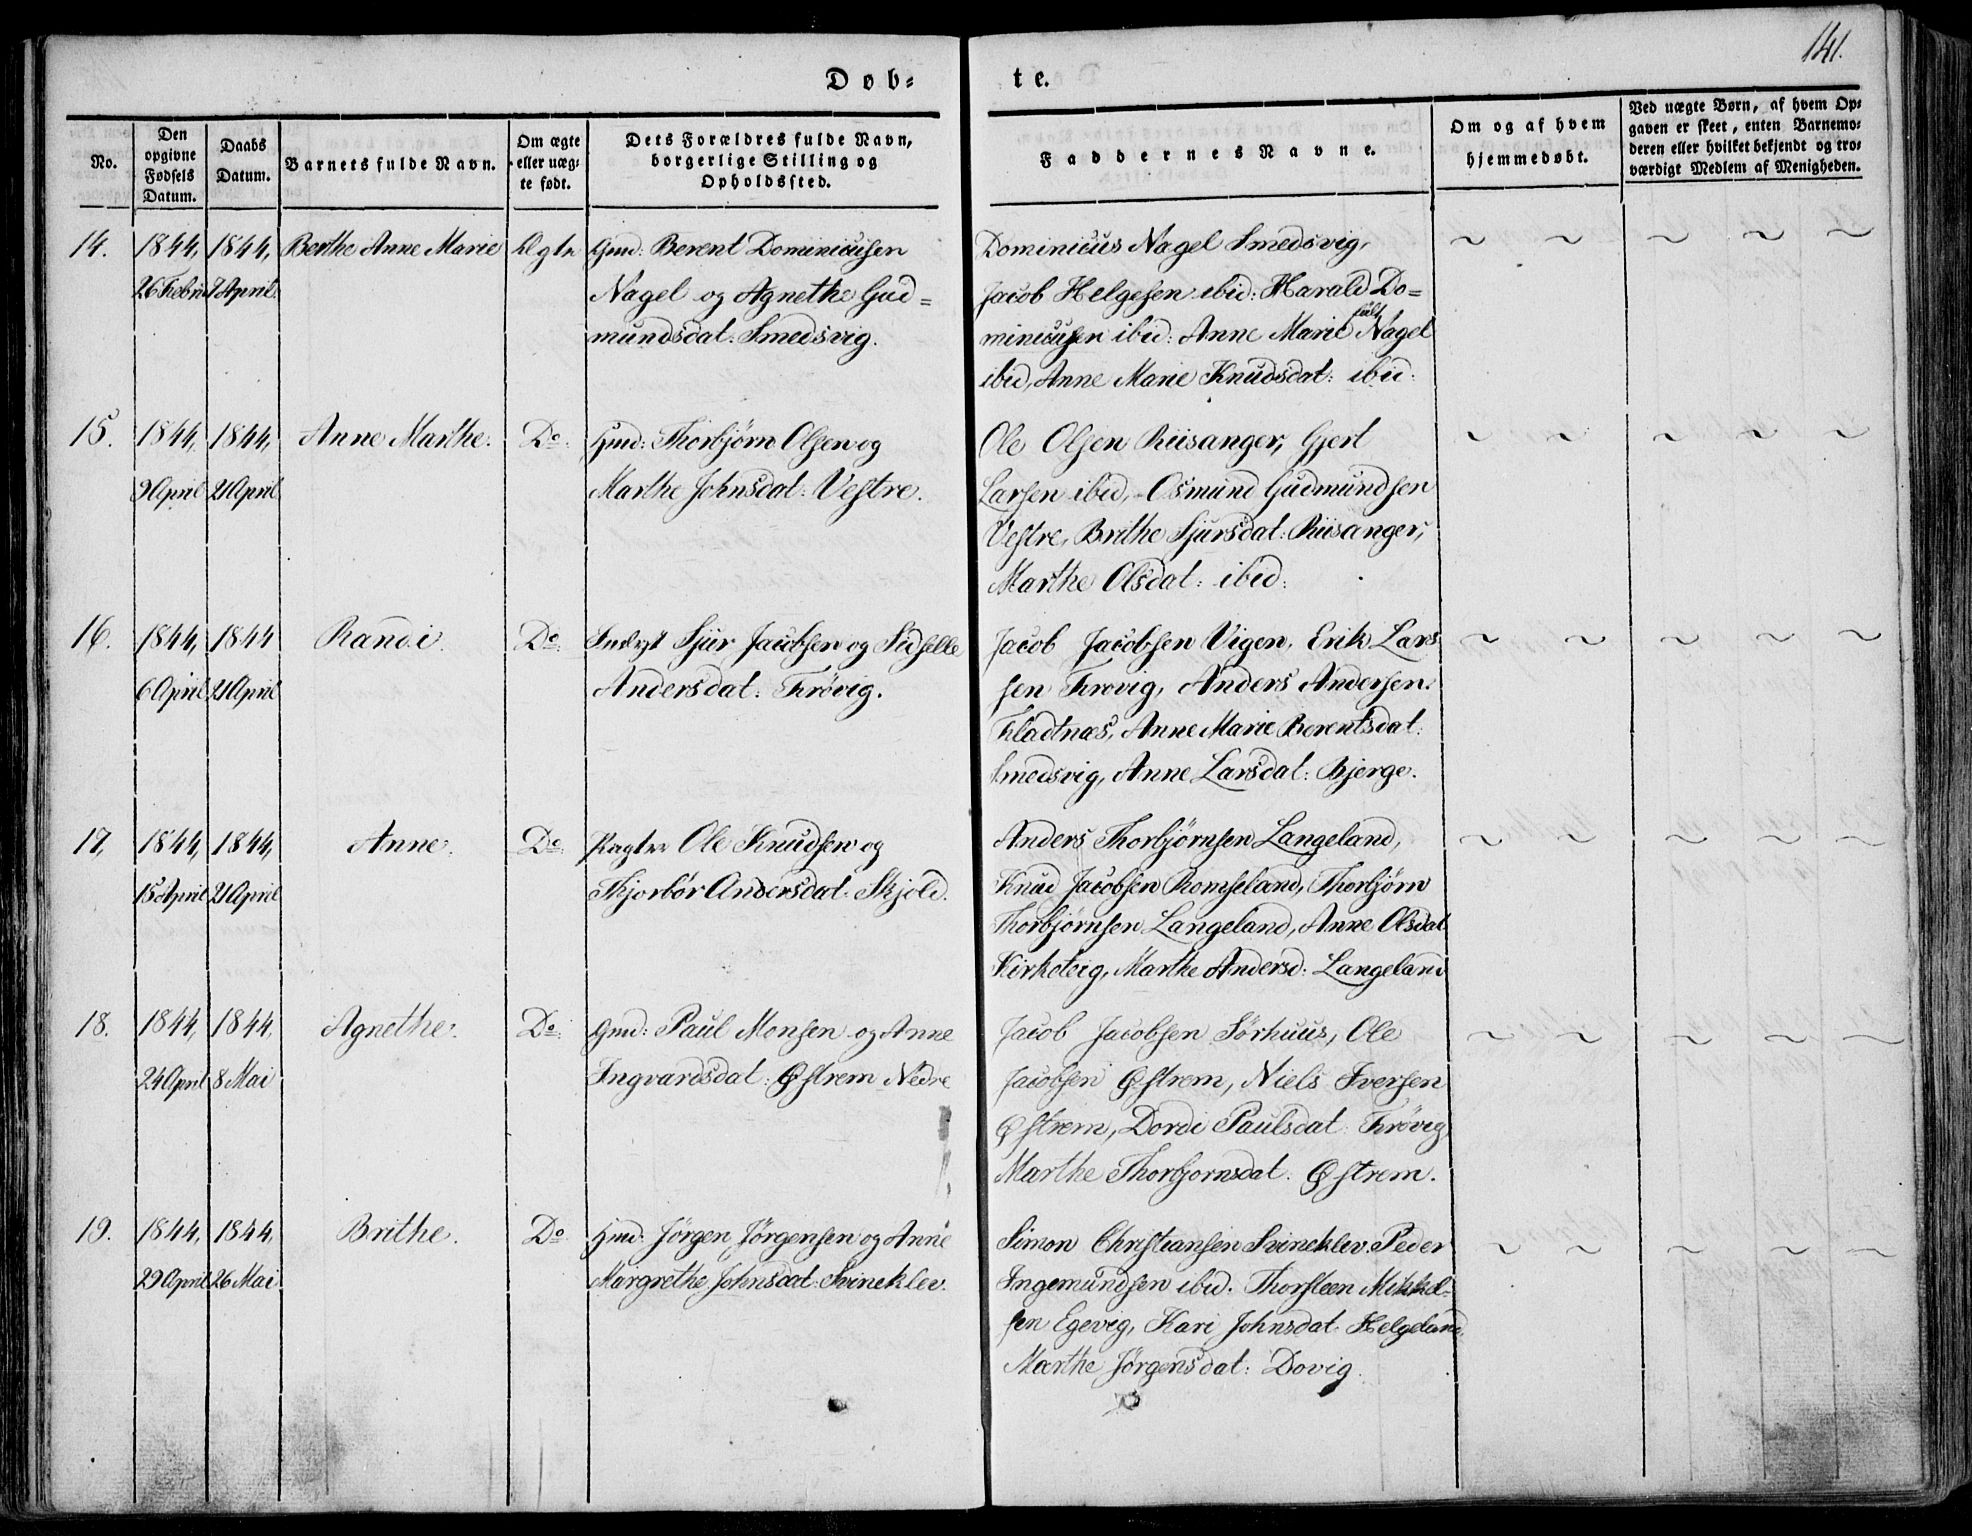 141.
Døb-
te.
No.
Den opgivne Fødsels Datum.
Daabs Datum.
Barnets fulde Navn.
Om ægte eller uægte født.
Dets Forældres fulde Navn, borgerlige Stilling og Opholdssted.
Faddernes Navne.
Om og af hvem hjemmedøbt.
Ved uægte Børn, af hvem Opgaven er skeet, enten Barnemoderen eller hvilket bekjendt og troværdigt Medlem af Menigheden.
14. 1844, 1844, Berthe Anne Marie Ægte Gmd: Berent Dominicusen
26 Febru 7 April Nagel og Agnethe Gud=
mundsdat: Smedsvig.
Dominicus Nagel Smedsvig,
Jacob Helgesen ibid: Harald Do=
minicusen ibid: Anne Marie født Nagel
ibid, Anne Marie Knudsdat: ibid:
15. 1844, 1844, Anne Marthe. Do. Hmd: Thorbjørn Olsen og
9 April 21 April Marthe Johnsdat: Vestre.
Ole Olsen Riisanger, Gjert
Larsen ibid, Osmund Gudmundsen
Vestre, Brithe Sjursdat: Riisanger,
Marthe Olsdat: ibid:
16. 1844, 1844 Randi. Do. Inderst Sjur Jacobsen og Sidselle
6 April 21 April Andersdat: Frøvig.
Jacob Jacobsen Vigen, Erik Lar-
sen Frøvig, Anders Andersen
Fladtnæs, Anne Marie Berentsdat:
Smedsvig, Anne Larsdat: Bjerge.
17, 1844, 1844, Anne. Do. Ole Knudsen og
15 April 21 April Thjorbør Andersdat: Skjold.
Anders Thorbjørnsen Langeland,
Knud Jacobsen Romseland, Thorbjørn
Thorbjørnsen Langeland, Anne Olsdat
Kirketeig, Marthe Andersd: Langeland
18. 1844, 1844, Agnethe. Do. Gmd: Paul Monsen og Anne
24 April 8 Mai Ingvardsdat: Østrem Nedre
Jacob Jacobsen Sørhuus, Ole
Jacobsen Østrem, Niels Iversen
Østrem, Dordi Paulsdat: Frøvig
Marthe Thorbjornsdat: Østrem.
19. 1844, 1844, Brithe. Do. Hmd: Jørgen Jørgensen og Anne
29 April 26 Mai Margrethe Johnsdat: Svineklev.
Simon Christiansen Svineklev. Peder
Ingemundsen ibid. Thorsteen Mikkel-
sen Egevig, Kari Johnsdat: Helgeland,
Marthe Jørgensdat: Dovig.